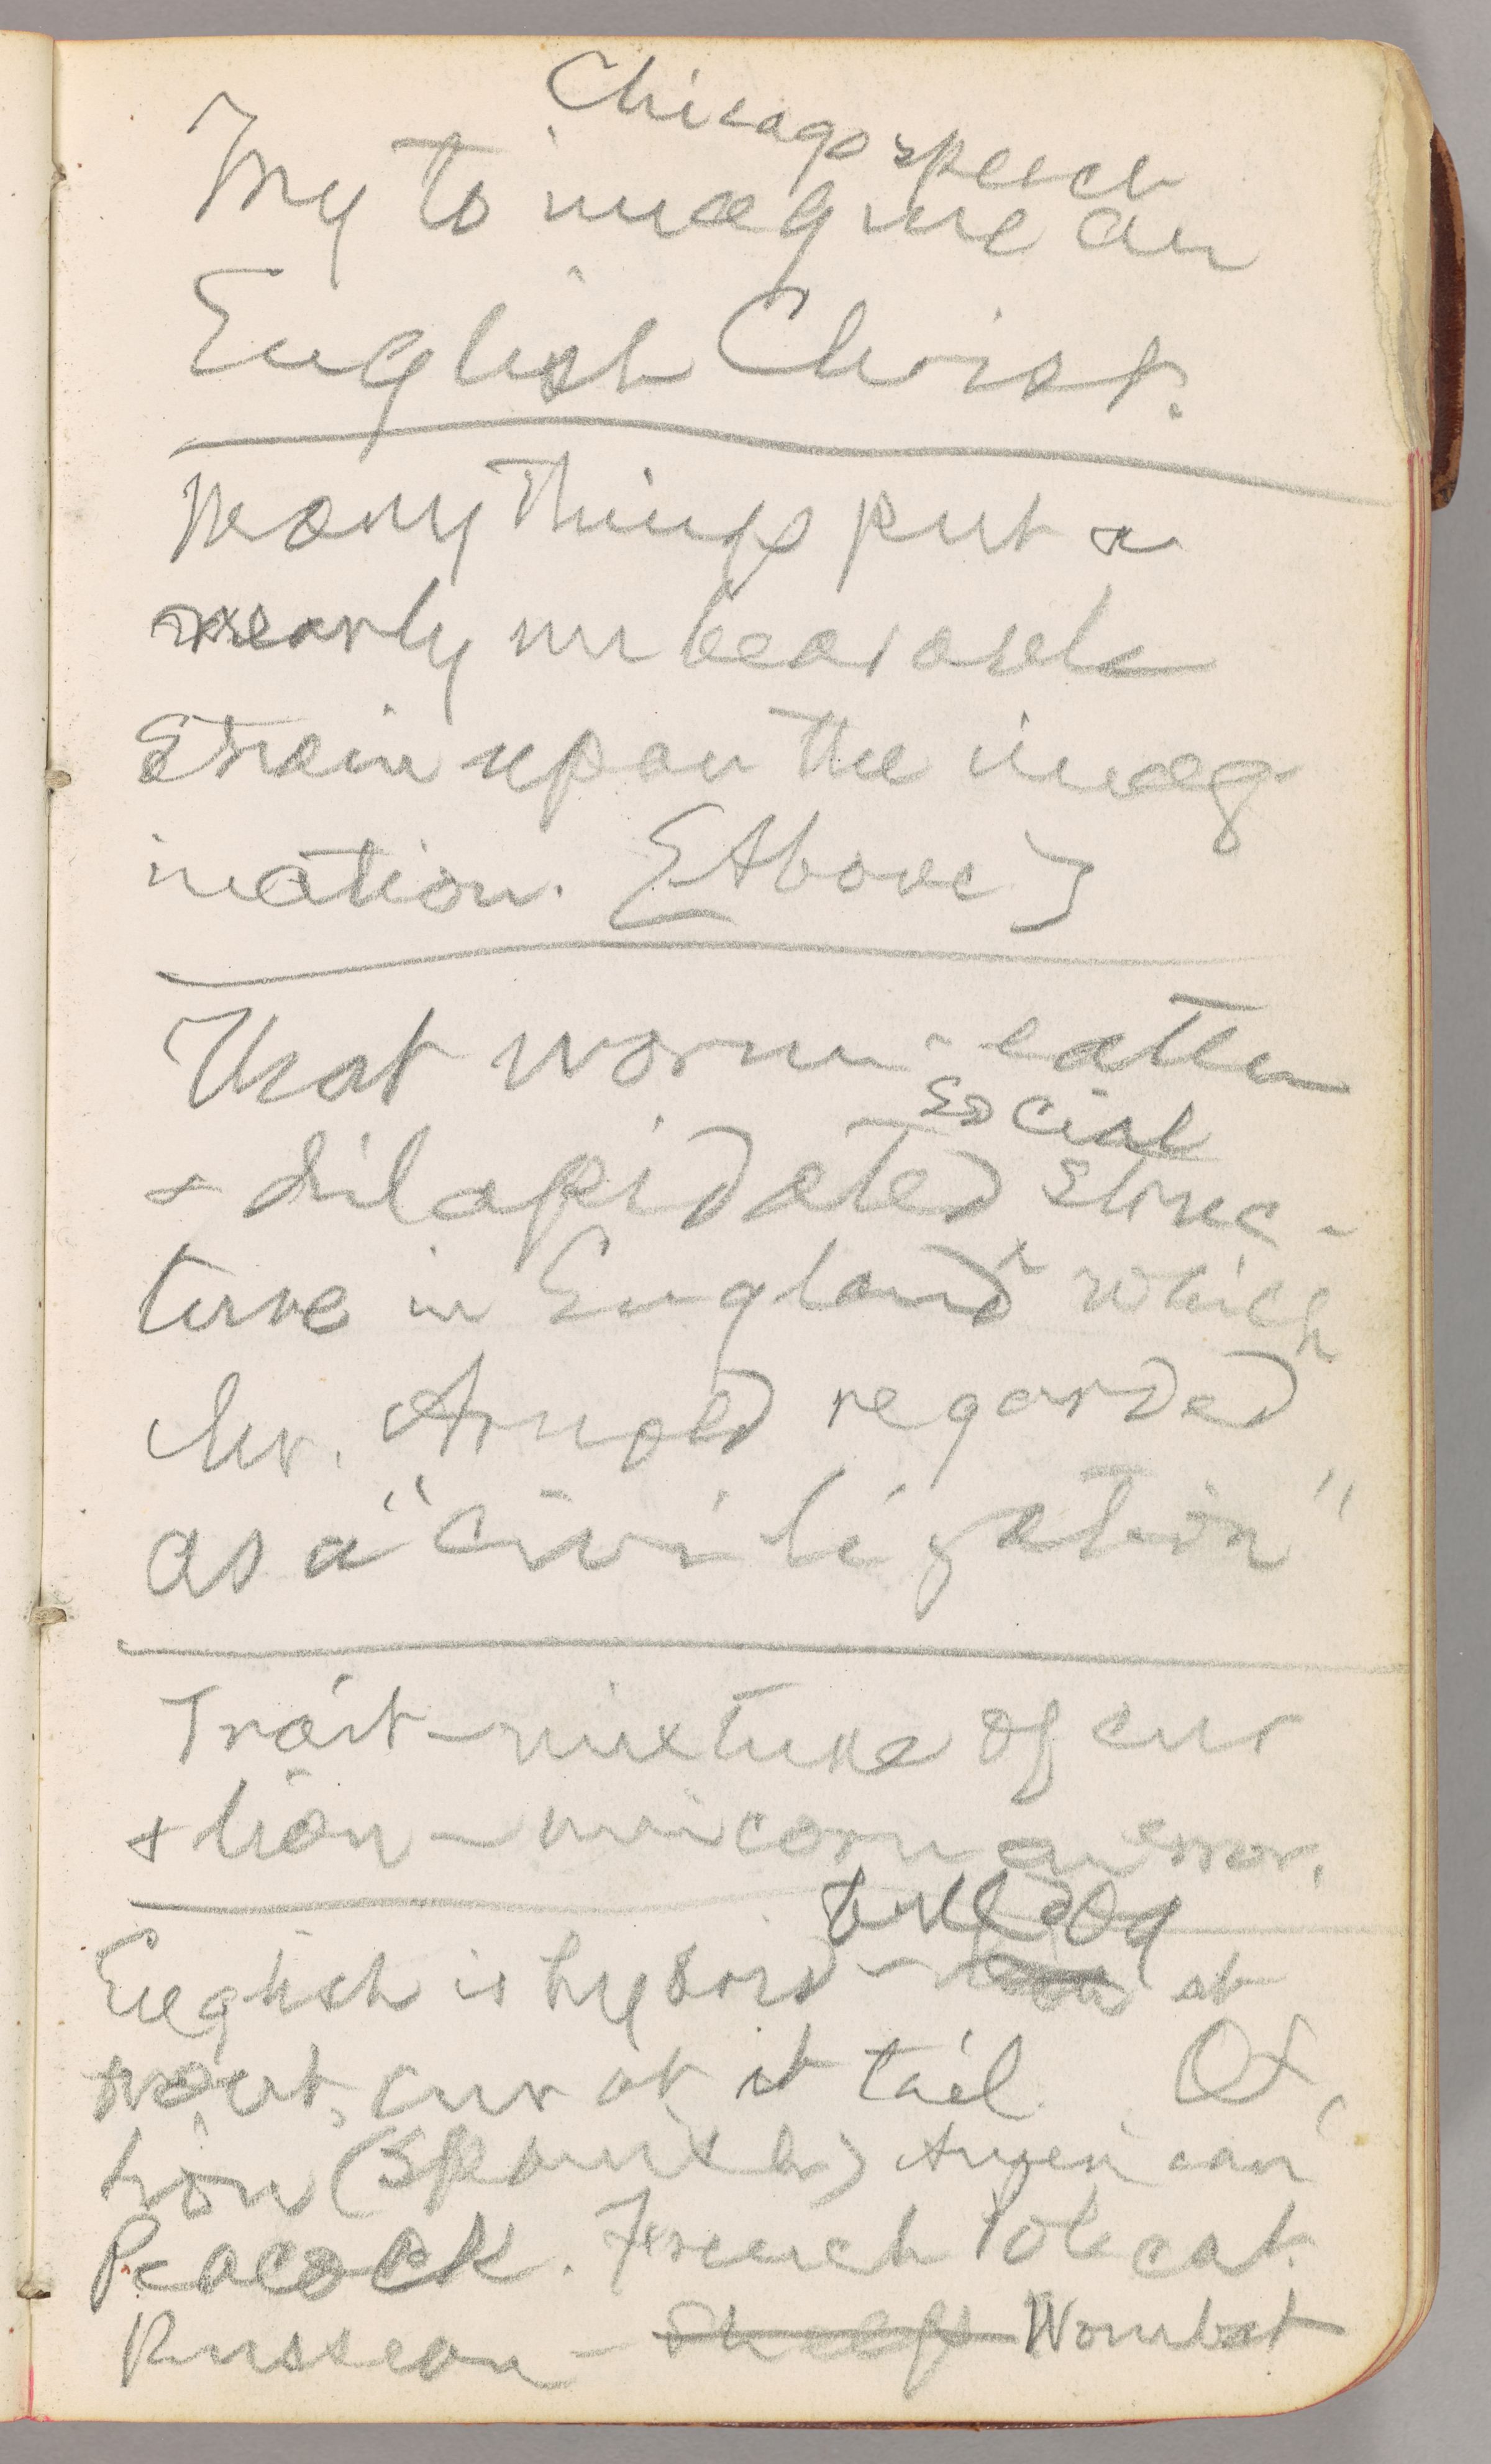 Chicago speech
Try to imagine an
English Christ.
Many things put a
nearly unbearable
strain upon the imag
ination. [Above]
That worm-eaten
social
& dilapidated struc-
ture in England which
Mr. Arnold regarded
as a "civilization"
Trait—mixture of cur
& lion—unicorn an error.
bulldog
English is hybrid—lion at
snout, cur at it tail. Ox,
lion (Spanish) American
Peacock. French Polecat.
Russian—Sheep Wombat